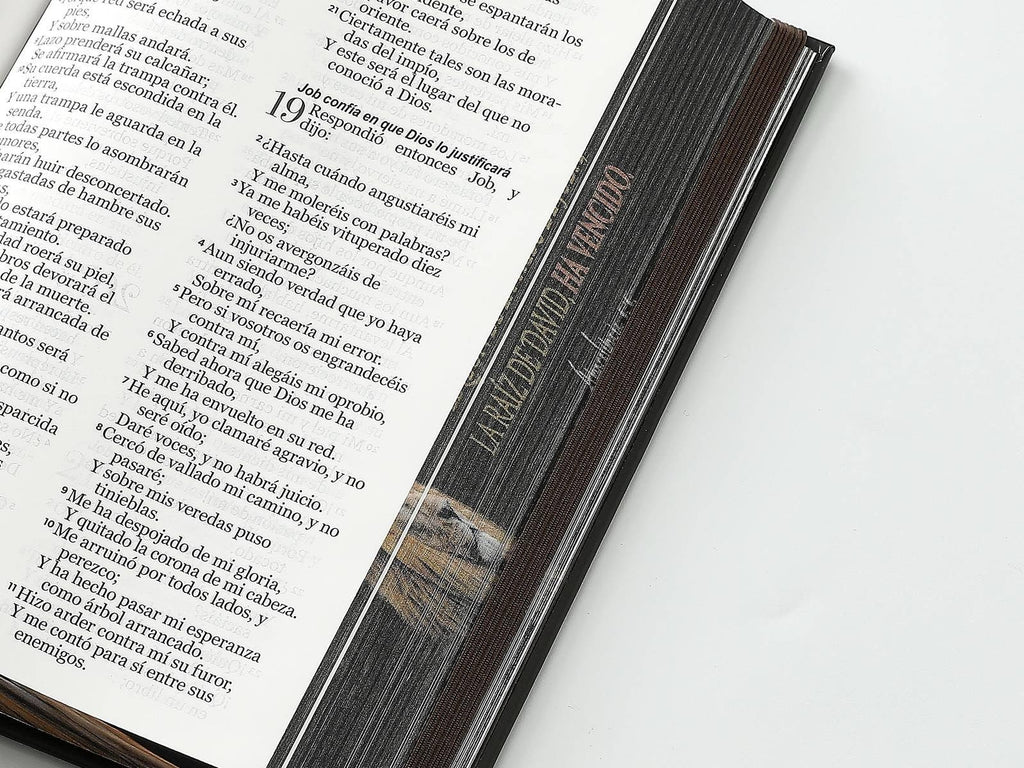 red será echada a sus
pies,
Y sobre mallas andará.
Lazo prenderá su calcañar;
Se afirmará la trampa contra él.
Su cuerda está escondida en la
tierra,
Y una trampa le aguarda en la
senda.
todas partes lo asombrarán
huir desconcertado.
gastadas de hambre sus
estará preparado
roerá su piel,
devorará el
de la muerte.
arrancada de
será
como si no
se espantarán los
de oriente.
21 Ciertamente tales son las mora-
das del impío,
Y este será el lugar del que no
conoció a Dios.
Job confía en que Dios lo justificará
19 Respondió entonces Job, y
dijo:
2 ¿Hasta cuándo angustiaréis mi
alma,
Y me moleréis con palabras?
3 Ya me habéis vituperado diez
veces;
¿No os avergonzáis de
injuriarme?
4 Aun siendo verdad que yo haya
errado,
Sobre mí recaería mi error.
5 Pero si vosotros os engrandecéis
contra mí,
Y contra mí alegáis mi oprobio,
6 Sabed ahora que Dios me ha
derribado,
Y me ha envuelto en su red.
7 He aquí, yo clamaré agravio, y no
seré oído;
Daré voces, y no habrá juicio.
8 Cercó de vallado mi camino, y no
pasaré;
Y sobre mis veredas puso
tinieblas.
9 Me ha despojado de mi gloria,
Y quitado la corona de mi cabeza.
10 Me arruinó por todos lados, y
perezco;
Y ha hecho pasar mi esperanza
como árbol arrancado.
11 Hizo arder contra mí su furor,
Y me contó para sí entre sus
enemigos.
LA RAÍZ DE DAVID, HA VENCIDO.